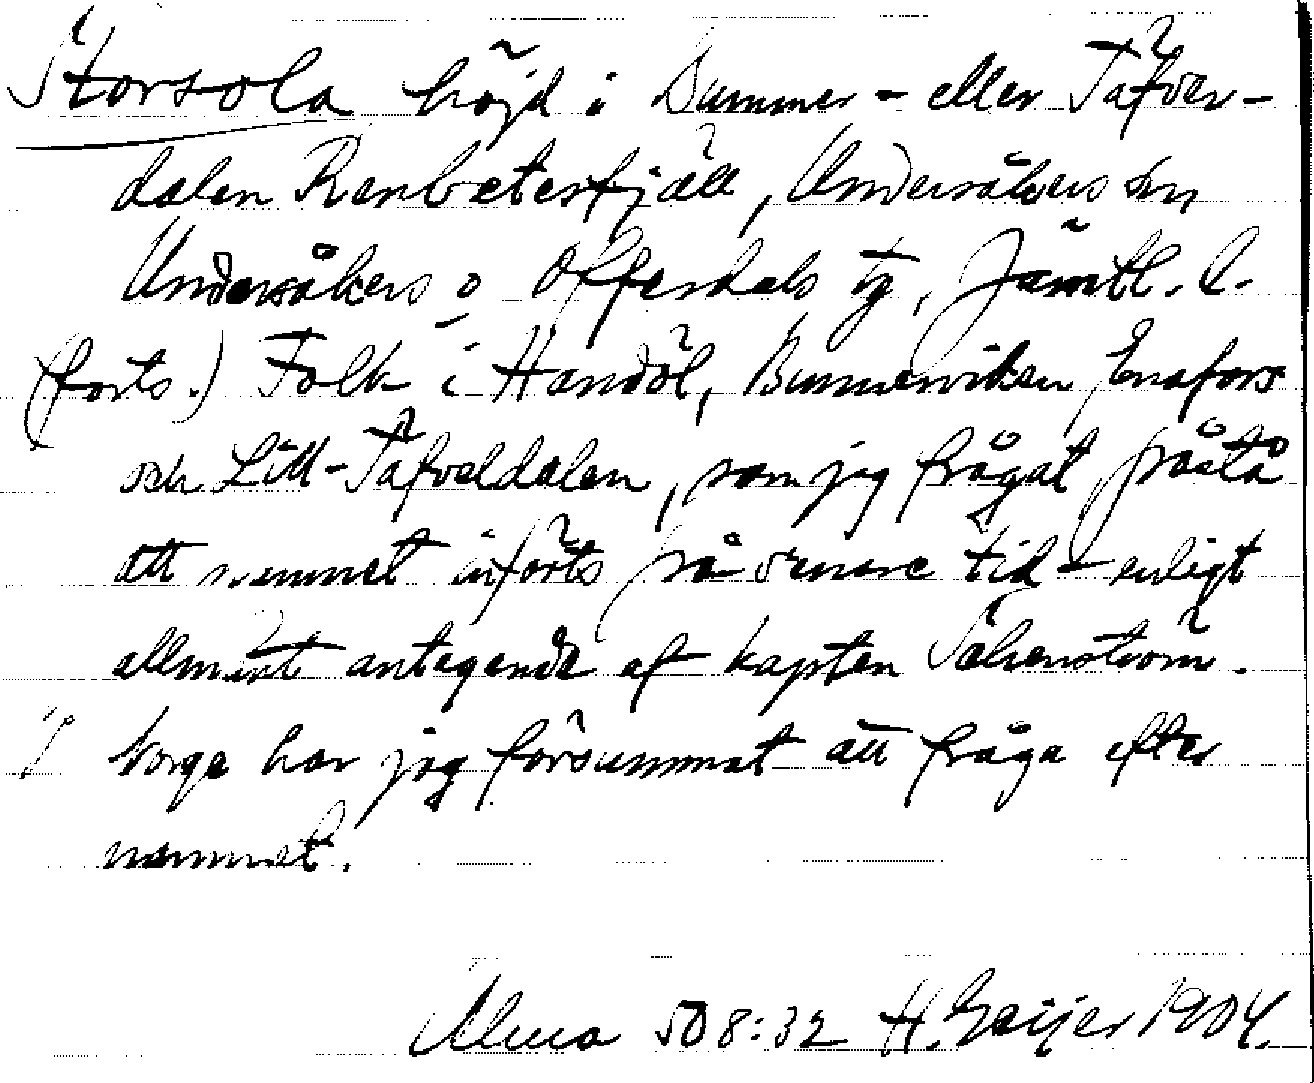 Storsola höjd i Bummer- eller Täfver-
dalen Renbetesfjäll, Undersåkers sn
Undersåkers o Offerdals tg, Jämtl. l.
(forts.) Folk i Handöl, Bunnerviken, Enafors
och Lill-Täfveldalen, som jag frågat, påstå
att namnet införts på senare tid - enligt
allmänt antagende af kapten
I Norge har jag försummat att fråga efter
namnet.
Alma 508:32 H. Geijer 1904.